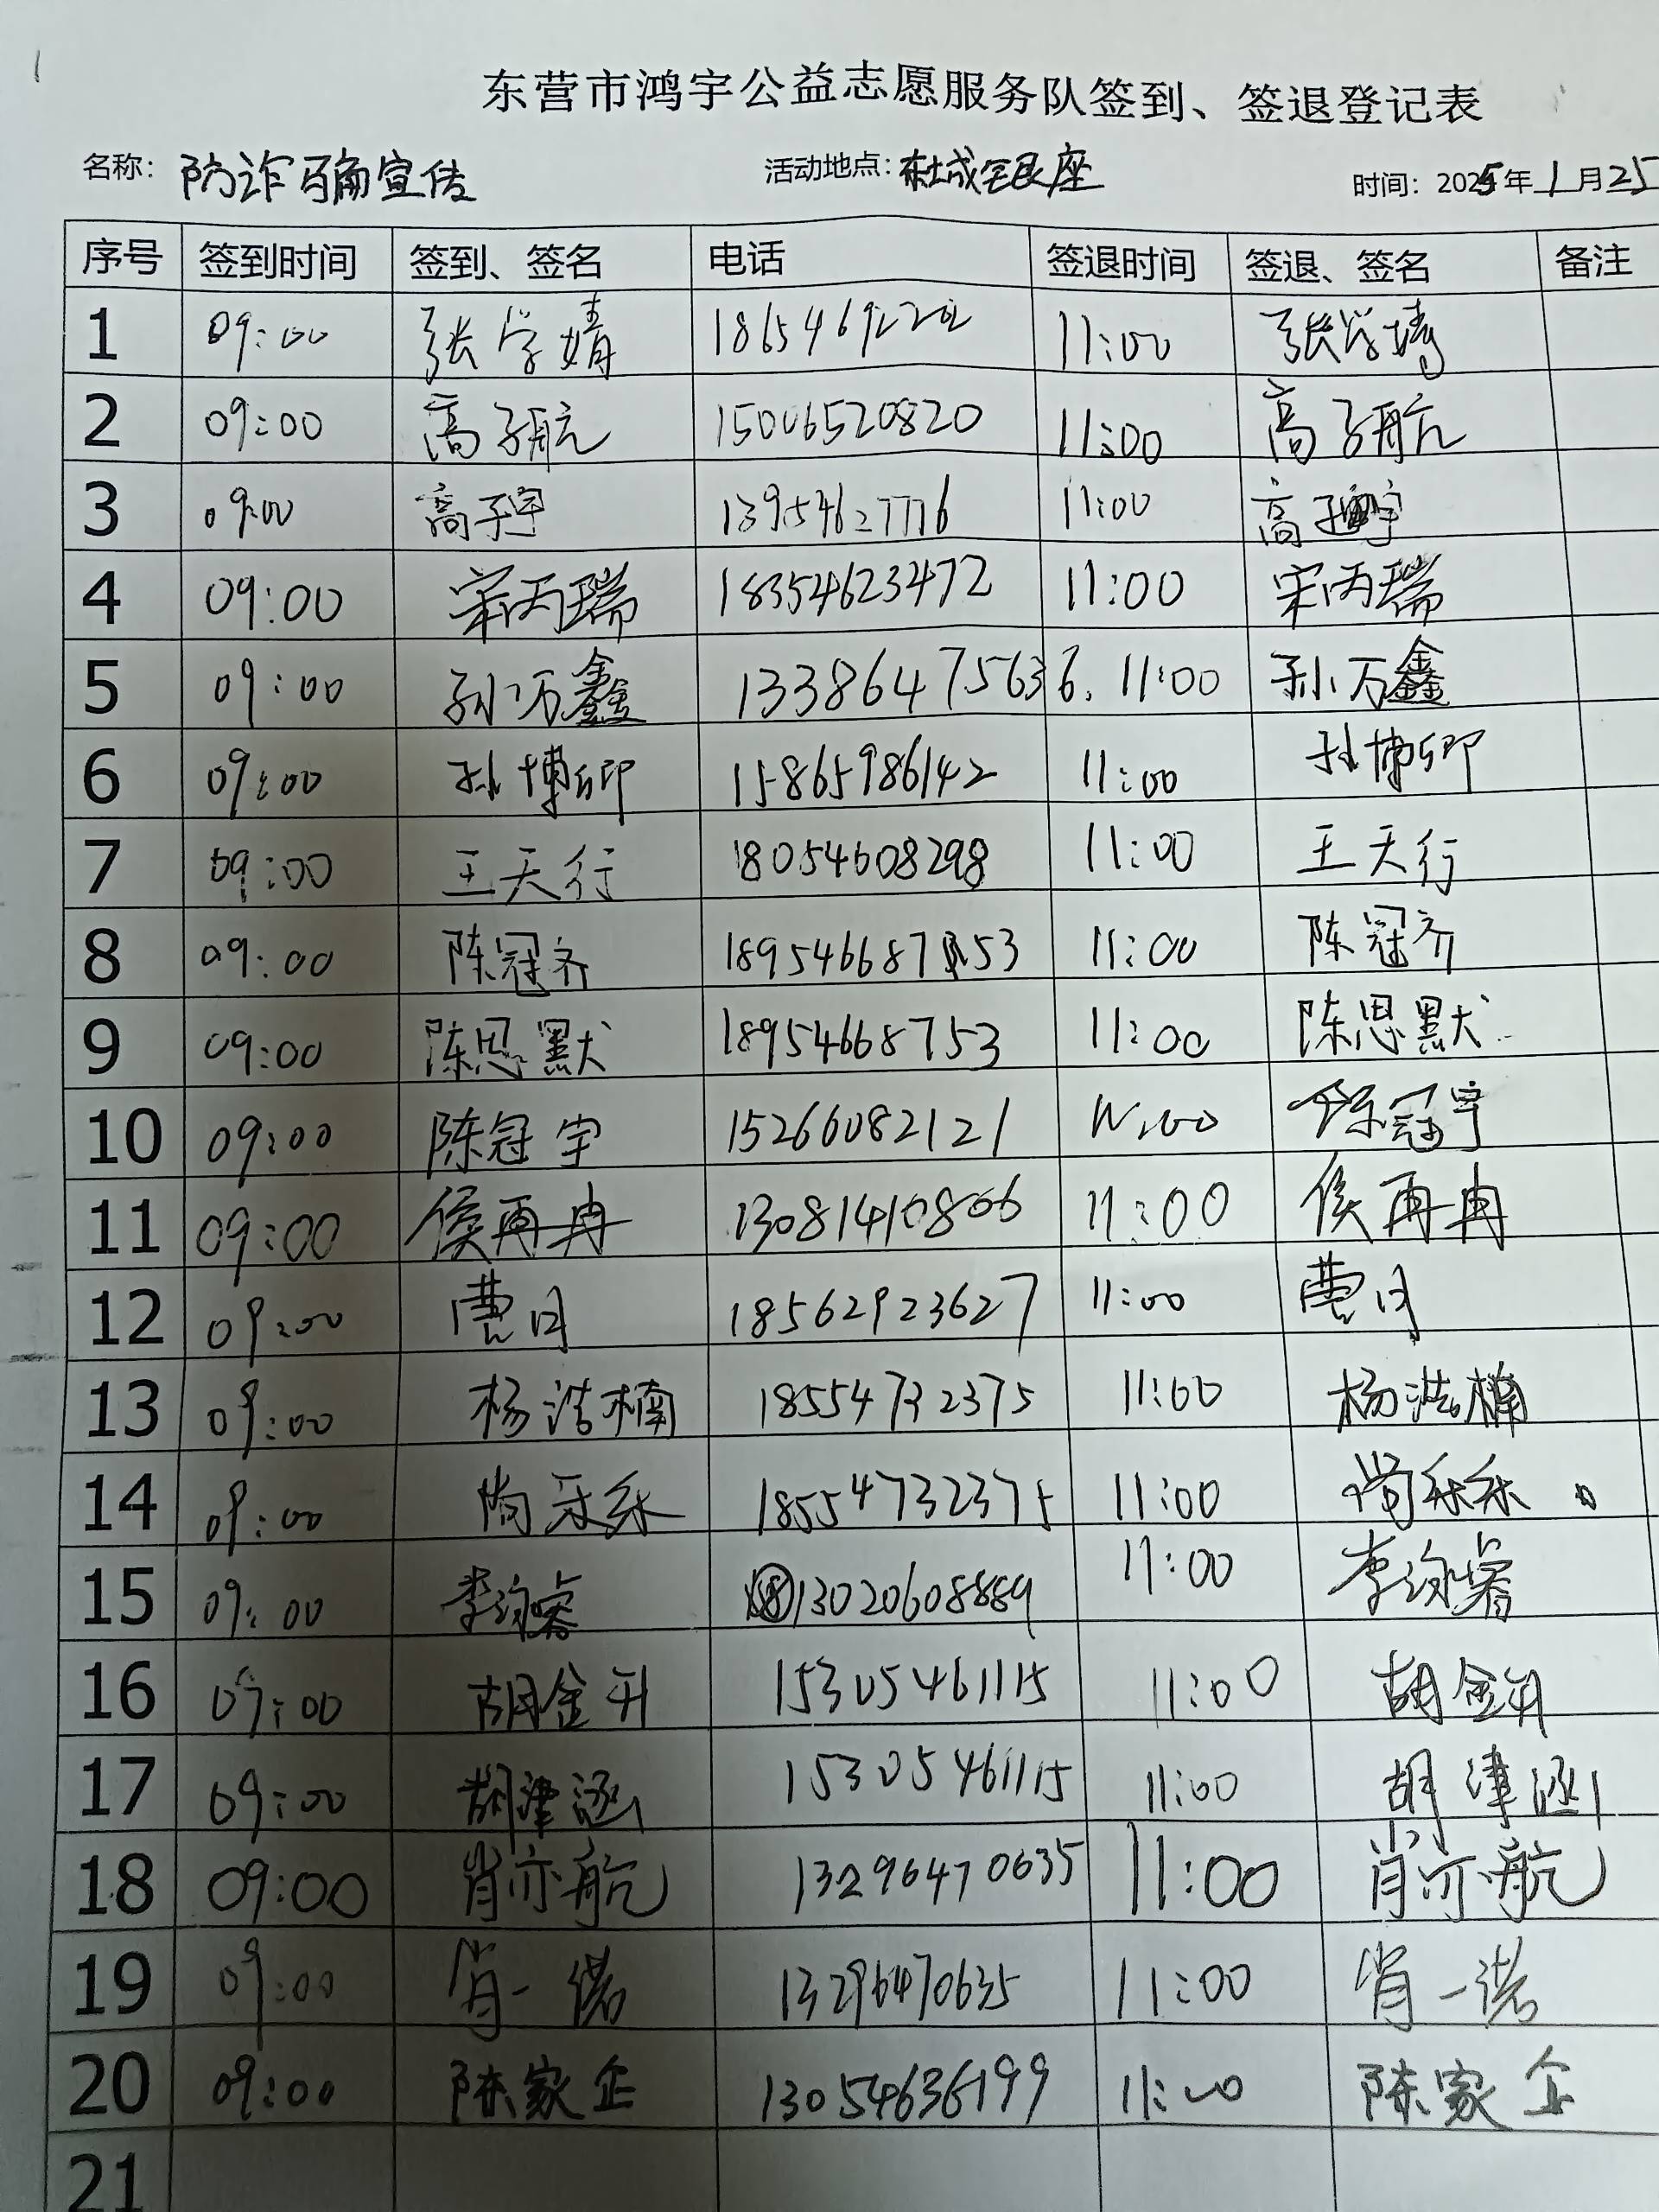 东营市鸿宇公益志愿服务队签到、签退登记表
名称： 防诈骗宣传 活动地点： 银座 时间：2025年1月25
序号 签到时间 签到、签名 电话 签退时间 签退、签名 备注
1 09:00 张学婧 11:00 张学婧
2 09:00 高子航 15006520820 11:00 高子航
3 09:00 高子宇 13954627776 11:00 高子宇
4 09:00 宋丙瑞 18354623472 11:00 宋丙瑞
5 09:00 孙万鑫 13386475636. 11:00 孙万鑫
6 09:00 孙博卿 15865986142 11:00 孙博卿
7 09:00 王天行 18054608298 11:00 王天行
8 09:00 陈冠齐 11:00 陈冠齐
9 09:00 陈思默 18954668753 11:00 陈思默
10 09:00 陈冠宇 15266082121 11:00 陈冠宇
11 09:00 侯再冉 13081410806 11:00 侯再冉
12 09:00 曹月 18562923627 11:00 曹月
13 09:00 杨浩楠 18554732375 11:00 杨浩楠
14 09:00 尚禾禾 18554732375 11:00 尚禾禾
15 09:00 13020608889 11:00
16 09:00 胡金升 15305461115 11:00 胡金升
17 09:00 胡津涵 15305461115 11:00 胡津涵
18 09:00 肖亦航 13296470635 11:00 肖亦航
19 09:00 肖一诺 13296470635 11:00 肖一诺
20 09:00 陈家企 13054636199 11:00 陈家企
21